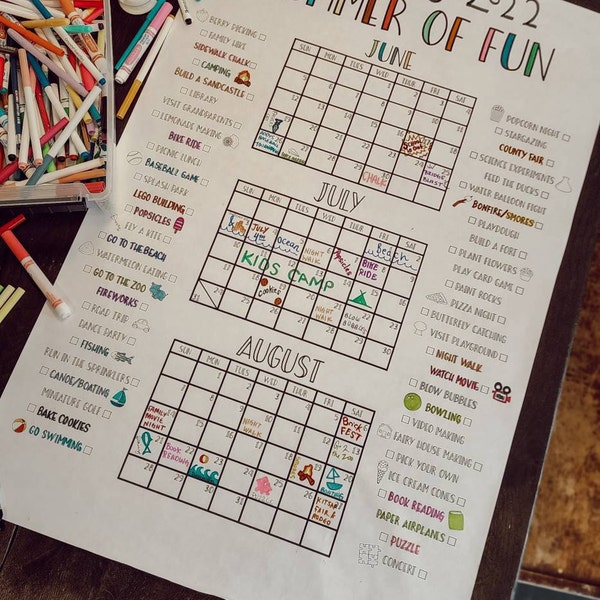 2022
SUMMER OF FUN
BERRY PICKING
FAMILY HIKE
SIDEWALK CHALK
CAMPING
BUILD A SANDCASTLE
LIBRARY
VISIT GRANDPARENTS
LEMONADE MAKING
BIKE RIDE
PICNIC LUNCH
BASEBALL GAME
SPLASH PARK
LEGO BUILDING
POPSICLES
FLY A KITE
GO TO THE BEACH
WATERMELON EATING
GO TO THE ZOO
FIREWORKS
ROAD TRIP
DANCE PARTY
FISHING
RUN IN THE SPRINKLERS
CANOE/BOATING
MINIATURE GOLF
BAKE COOKIES
GO SWIMMING
JUNE
SUN MON TUE WED THU FRI SAT
CHALK
JULY
SUN MON TUE WED THU FRI SAT
JULY 4th
Ocean
NIGHT WALK
Popsicles
BIKE RIDE
Beach
KIDS CAMP
Cookies
NIGHT WALK
BLOW BUBBLES
AUGUST
SUN MON TUE WED THU FRI SAT
FAMILY MOVIE NIGHT
NIGHT WALK
BRICK FEST
Go 2 the Zoo
BOOK READING
KITSAP FAIR & RODEO
POPCORN NIGHT
STARGAZING
COUNTY FAIR
SCIENCE EXPERIMENTS
FEED THE DUCKS
WATER BALLOON FIGHT
BONFIRE/SMORES
PLAYDOUGH
BUILD A FORT
PLANT FLOWERS
PLAY CARD GAME
PAINT ROCKS
PIZZA NIGHT
BUTTERFLY CATCHING
VISIT PLAYGROUND
NIGHT WALK
WATCH MOVIE
BLOW BUBBLES
BOWLING
VIDEO MAKING
FAIRY HOUSE MAKING
PICK YOUR OWN
ICE CREAM CONES
BOOK READING
PAPER AIRPLANES
PUZZLE
CONCERT